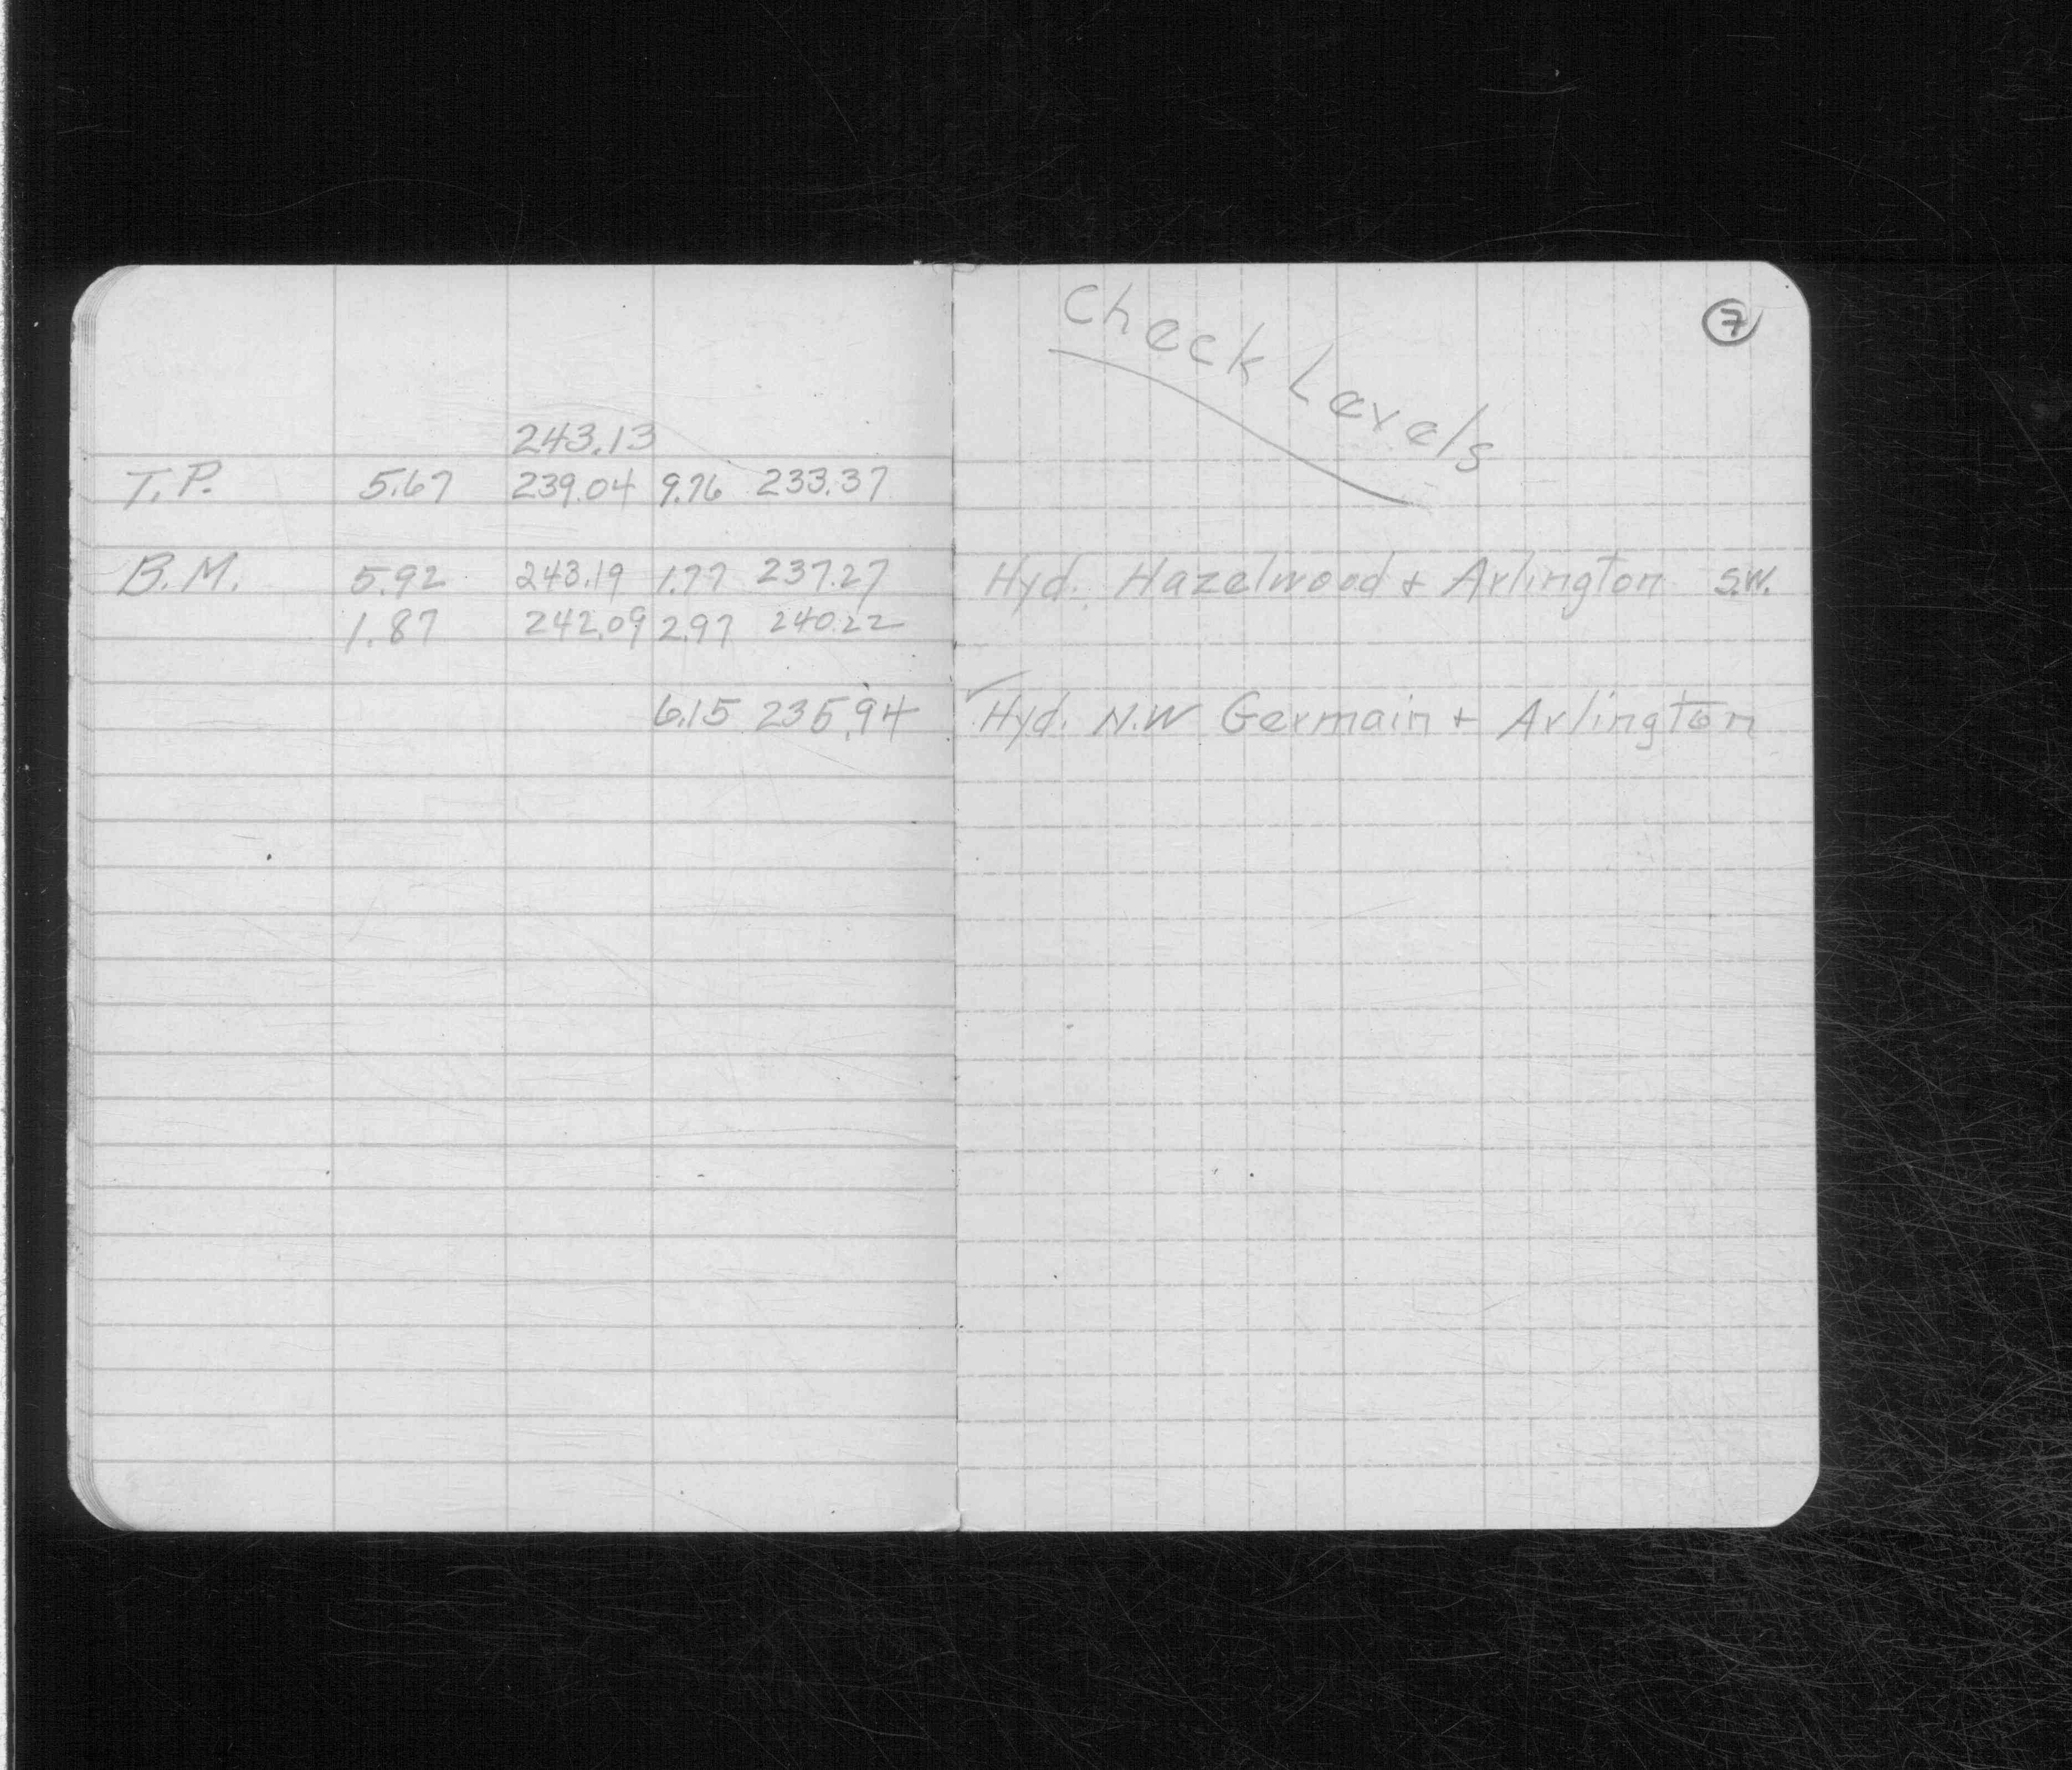 243.13
T.P. 5.67 239.04 9.76 233.37
B.M. 5.92 243.19 1.77 237.27
1.87 242.09 2.97 240.22
6.15 235.94
Check Levels
7
Hyd. Hazelwood + Arlington S.W.
✓
Hyd. N.W Germain + Arlington